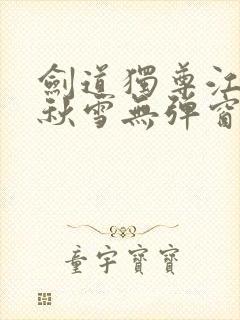 劍道獨尊江
秋雪無彈窗
童宇寶寶